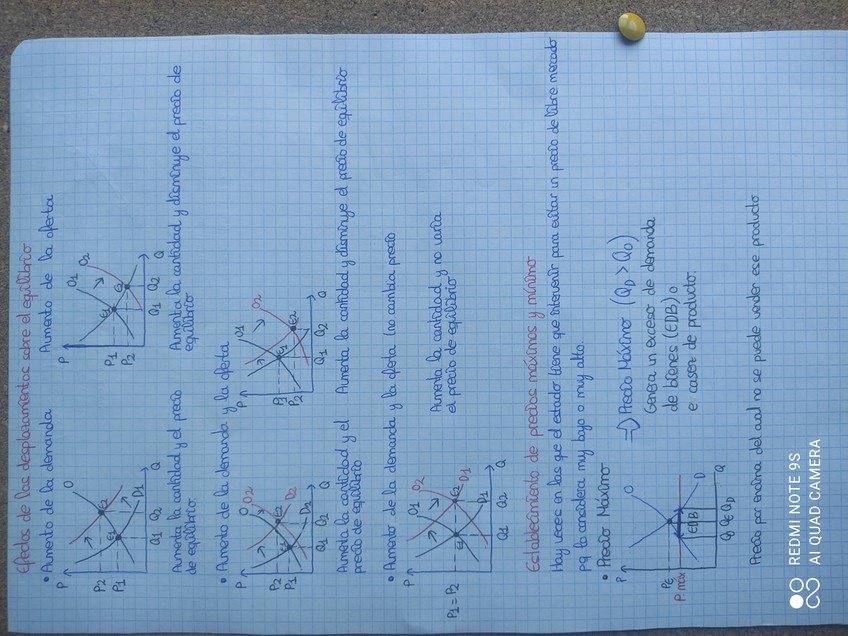 Efectos de los desplazamientos sobre el equilibrio
• Aumento de la demanda
Aumento de la oferta
P
O
P2
P1
E2
E1
D1
Q1 Q2
Q
P
O1
O2
P1
P2
E1
E2
Q1 Q2
Q
Aumenta la cantidad y el precio
de equilibrio.
Aumenta la cantidad y disminuye el precio de
equilibrio
• Aumento de la demanda y la oferta
P
O
O2
D2
D1
P2
P1
E2
Q1 Q2
Q
P
O1
O2
P1
P2
E1
E2
Q1 Q2
Q
Aumenta la cantidad y el
precio de equilibrio
Aumenta la cantidad y disminuye el precio de equilibrio
• Aumento de la demanda y la oferta (no cambia precio)
P
O1
O2
D1
D1
P1 = P2
E1
E2
Q1 Q2
Q
Aumenta la cantidad y no varía
el precio de equilibrio
Establecimiento de precios máximos y mínimo
Hay veces en las que el estado tiene que intervenir para evitar un precio de libre mercado
pq lo considera muy bajo o muy alto.
• Precio Máximo
P
O
D
PE
P máx
EDB
QO QE QD
Q
⇒ Precio Máximo (QD > QO)
Genera un exceso de demanda
de bienes (EDB) o
escasez de producto.
Precio por encima del cual no se puede vender ese producto
REDMI NOTE 9S
AI QUAD CAMERA